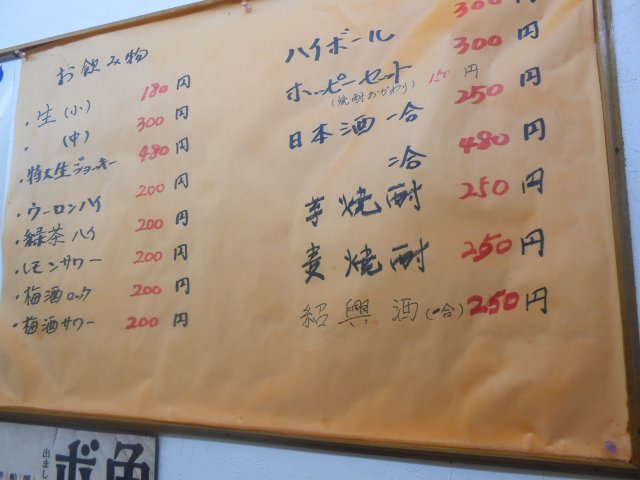 お飲み物
・生(小) 180円
・(中) 300円
・特大生ジョッキー 480円
・ウーロンハイ 200円
・緑茶ハイ 200円
・レモンサワー 200円
・梅酒ロック 200円
・梅酒サワー 200円
ハイボール 300円
ホッピーセット 300円
(焼酎おかわり) 150円
日本酒 一合 250円
二合 480円
芋焼酎 250円
麦焼酎 250円
紹興酒(一合) 250円
角
出まし